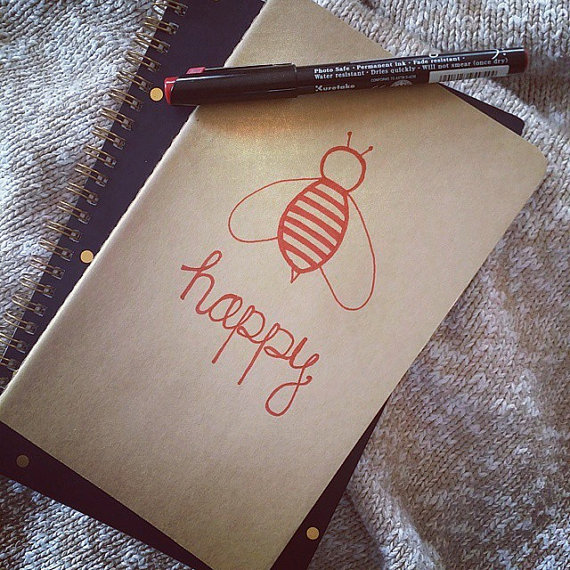 Photo Safe • Permanent ink • Fade resistant •
Water resistant • Dries quickly • Will not smear (once dry)
Kuretake
CONFORMS TO ASTM D-4236
happy